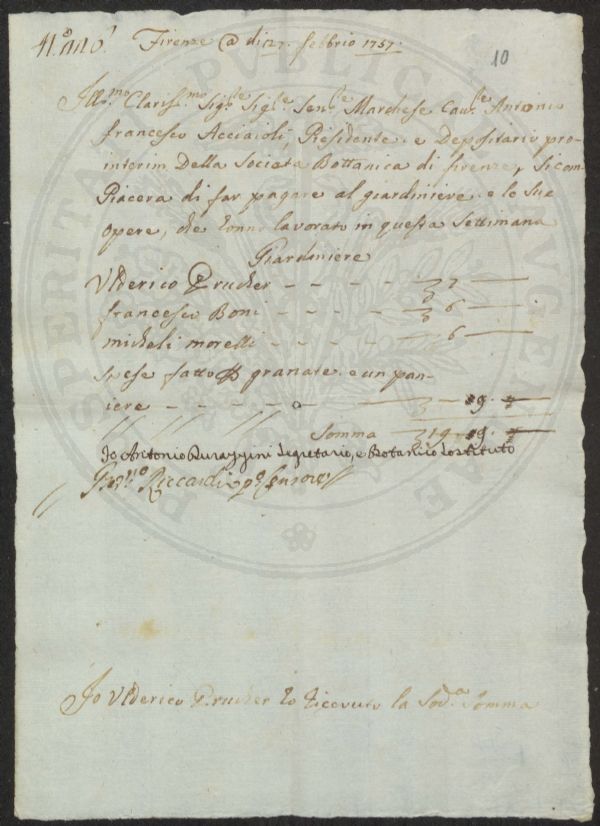 Firenze @ di 27. febbrio 1757.
10
Ill.mo Clariss.mo Sig.re Sig.re Sen.re Marchese Cav.re Antonio
francesco Acciaioli, Presidente e Depositario pro-
interim Della Societa Bottanica di firenze, Si com-
Piacera di far pagare al giardiniere e le Sue
opere, che tonno lavorato in questa Settimana
Giardiniere
Ulderico Prucher - - - - 7
francesco Boni - - - - 6
micheli morelli - - - - 6
Spese fatto P granate e un pan-
iere - - - 9
Somma 19 9
Io Antonio Durazzini Segretario, e Botanico Sostituto
Riccardi Censore
Io Ulderico Prucher ho Ricevuto la Sod.a Somma
PROSPERITATI PUBLICAE AUGENDAE